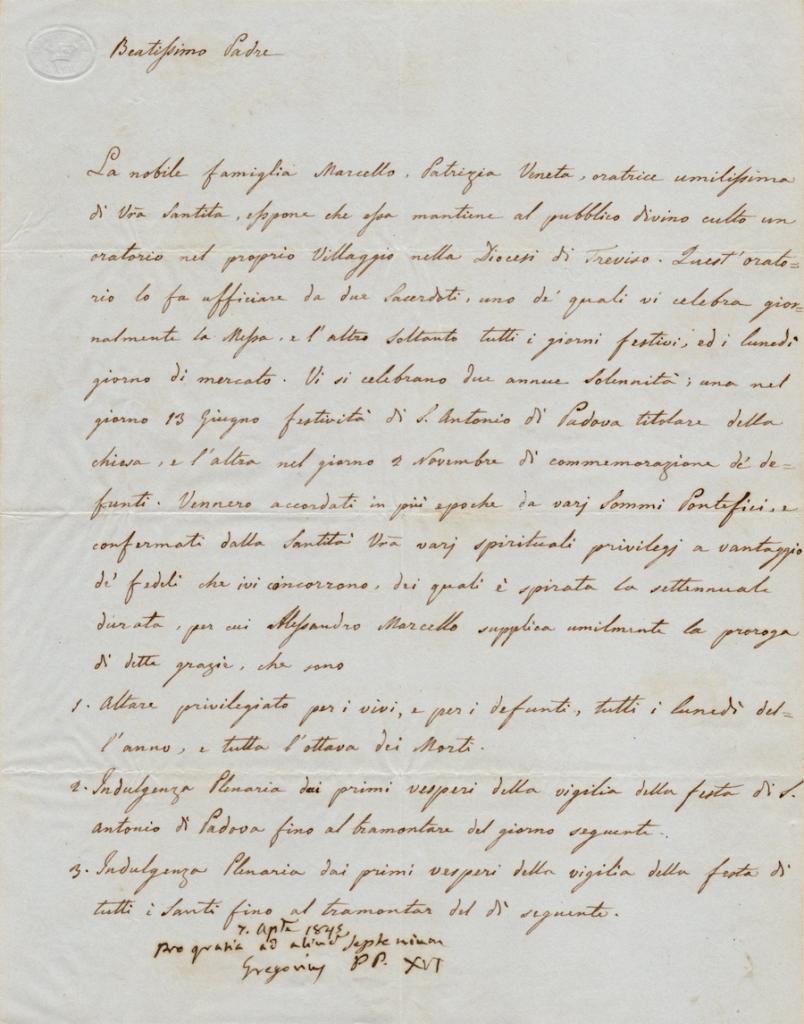 Beatissimo Padre
La nobile famiglia Marcello, Patrizia Veneta, oratrice umilissima
di Vrã Santità, espone che essa mantiene al pubblico divino culto un
oratorio nel proprio Villaggio nella Diocesi di Treviso. Quest'orato=
rio lo fa ufficiare da due Sacerdoti, uno de' quali vi celebra gior=
nalmente la Messa, e l'altro soltanto tutti i giorni festivi, ed i lunedì
giorno di mercato. Vi si celebrano due annue Solennità; una nel
giorno 13 Giugno festività di S. Antonio di Padova titolare della
chiesa, e l'altra nel giorno 2 Novembre di commemorazione de' de=
funti. Vennero accordati in più epoche da varj Sommi Pontefici, e
confermati dalla Santità Vrã varj spirituali privilegj a vantaggio
de' fedeli che ivi concorrono, dei quali è spirata la settennale
durata, per cui Alessandro Marcello supplica umilmente la proroga
di dette grazie, che sono
1. Altare privilegiato per i vivi, e per i defunti, tutti i lunedì del=
l'anno, e tutta l'ottava dei Morti.
2. Indulgenza Plenaria dai primi vesperi della vigilia della festa di S.
Antonio di Padova fino al tramontare del giorno seguente.
3. Indulgenza Plenaria dai primi vesperi della vigilia della festa di
tutti i Santi fino al tramontar del dì seguente.
7.
pro gratia ad aliud septennium
Gregorius PP. XVI